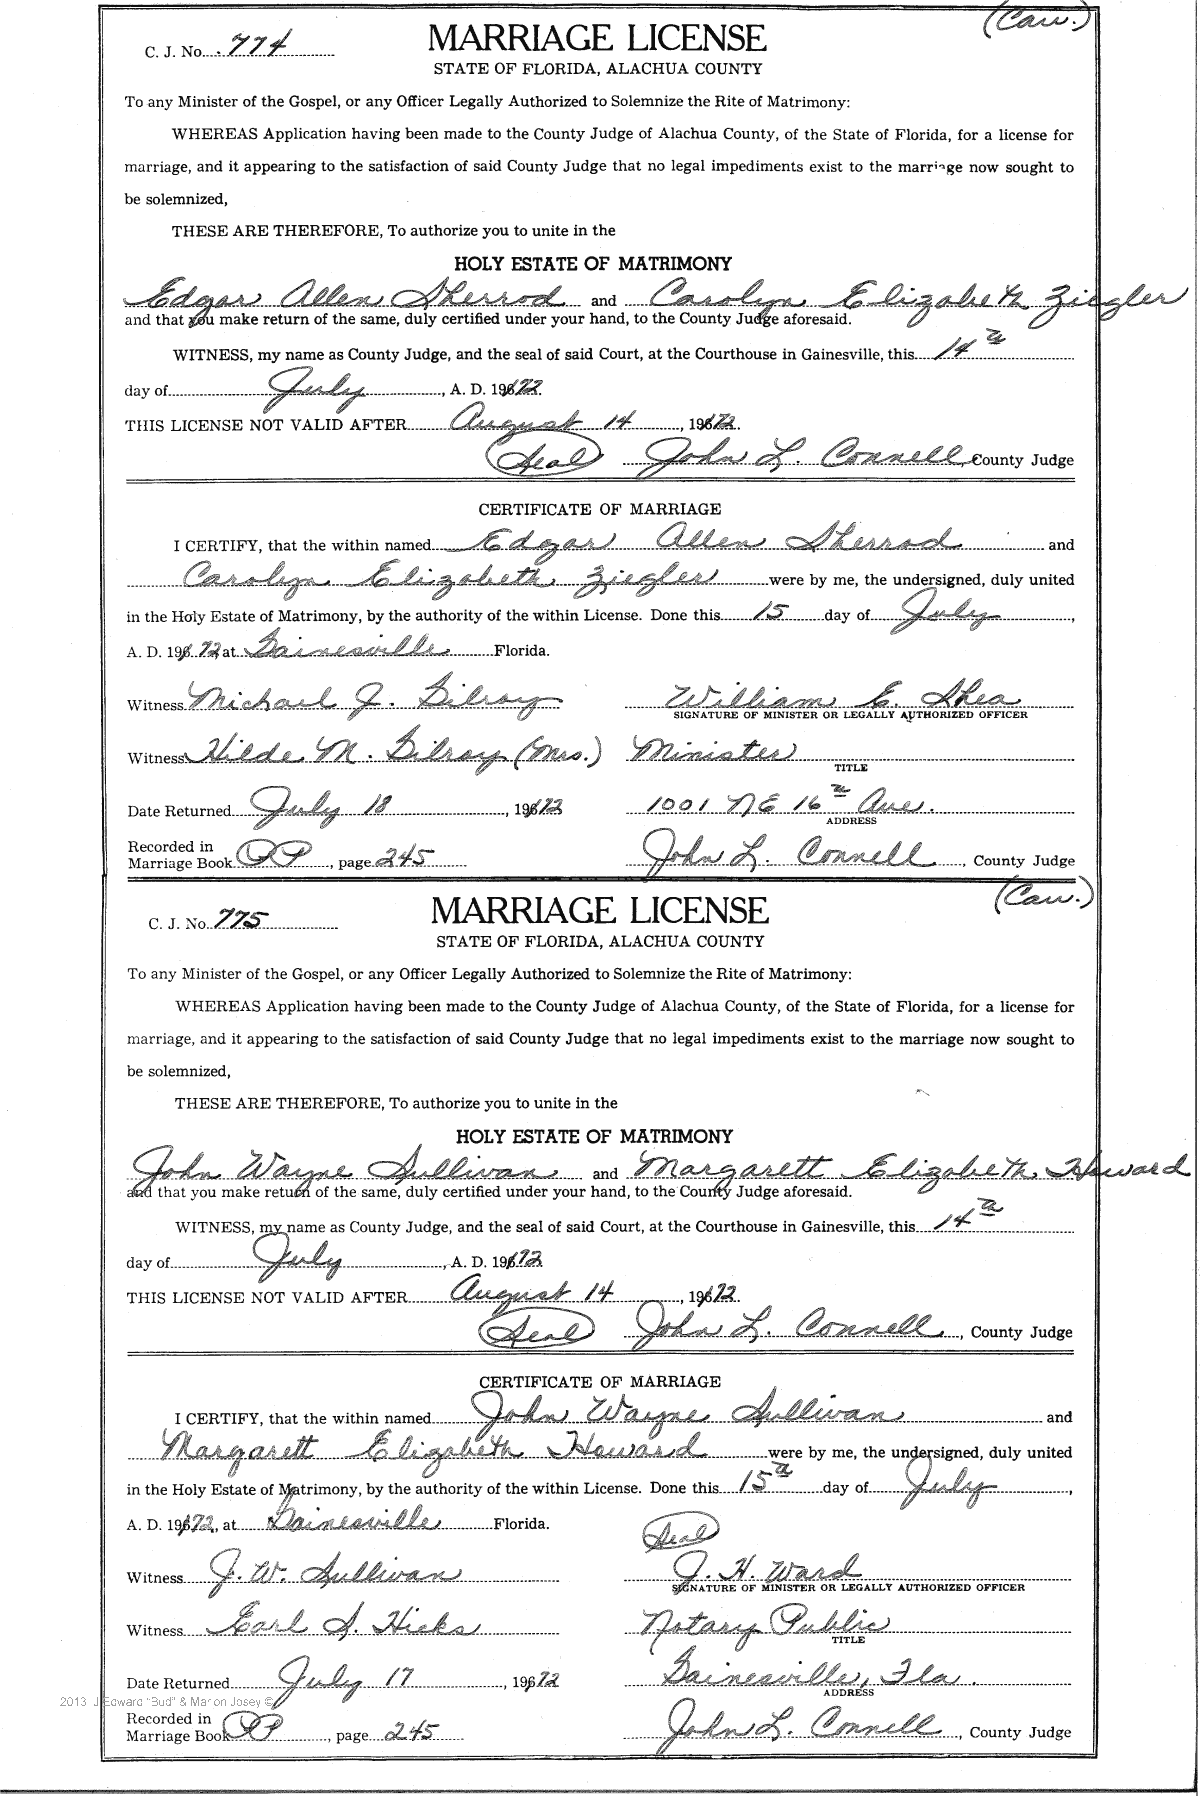 (Cau.)
C. J. No. 774
MARRIAGE LICENSE
STATE OF FLORIDA, ALACHUA COUNTY
To any Minister of the Gospel, or any Officer Legally Authorized to Solemnize the Rite of Matrimony:
WHEREAS Application having been made to the County Judge of Alachua County, of the State of Florida, for a license for
marriage, and it appearing to the satisfaction of said County Judge that no legal impediments exist to the marriage now sought to
be solemnized,
THESE ARE THEREFORE, To authorize you to unite in the
HOLY ESTATE OF MATRIMONY
Edgar Allen Sherrod and Carolyn Elizabeth Ziegler
and that you make return of the same, duly certified under your hand, to the County Judge aforesaid.
WITNESS, my name as County Judge, and the seal of said Court, at the Courthouse in Gainesville, this 14th
day of July, A. D. 1972.
THIS LICENSE NOT VALID AFTER August 14, 1972.
(Seal) John L. Connell, County Judge
CERTIFICATE OF MARRIAGE
I CERTIFY, that the within named Edgar Allen Sherrod and
Carolyn Elizabeth Ziegler were by me, the undersigned, duly united
in the Holy Estate of Matrimony, by the authority of the within License. Done this 15 day of July,
A. D. 1972, at Gainesville Florida.
Witness Michael J. Gilroy William E. Shea
SIGNATURE OF MINISTER OR LEGALLY AUTHORIZED OFFICER
Witness Hilde M. Gilroy (Mrs.) Minister
TITLE
Date Returned July 18, 1972 1001 NE 16th Ave.
ADDRESS
Recorded in
Marriage Book PP, page 245 John L. Connell, County Judge
(Cau.)
C. J. No. 775
MARRIAGE LICENSE
STATE OF FLORIDA, ALACHUA COUNTY
To any Minister of the Gospel, or any Officer Legally Authorized to Solemnize the Rite of Matrimony:
WHEREAS Application having been made to the County Judge of Alachua County, of the State of Florida, for a license for
marriage, and it appearing to the satisfaction of said County Judge that no legal impediments exist to the marriage now sought to
be solemnized,
THESE ARE THEREFORE, To authorize you to unite in the
HOLY ESTATE OF MATRIMONY
John Wayne Sullivan and Margarett Elizabeth Howard
and that you make return of the same, duly certified under your hand, to the County Judge aforesaid.
WITNESS, my name as County Judge, and the seal of said Court, at the Courthouse in Gainesville, this 14th
day of July, A. D. 1972
THIS LICENSE NOT VALID AFTER August 14, 1972.
(Seal) John L. Connell, County Judge
CERTIFICATE OF MARRIAGE
I CERTIFY, that the within named John Wayne Sullivan and
Margarett Elizabeth Howard were by me, the undersigned, duly united
in the Holy Estate of Matrimony, by the authority of the within License. Done this 15th day of July,
A. D. 1972, at Gainesville Florida.
(Seal)
Witness J. W. Sullivan J. H. Ward
SIGNATURE OF MINISTER OR LEGALLY AUTHORIZED OFFICER
Witness Earl S. Hicks Notary Public
TITLE
Date Returned July 17, 1972 Gainesville, Fla.
ADDRESS
2013 J Edward "Bud" & Marion Josey ©
Recorded in
Marriage Book PP, page 245 John L. Connell, County Judge